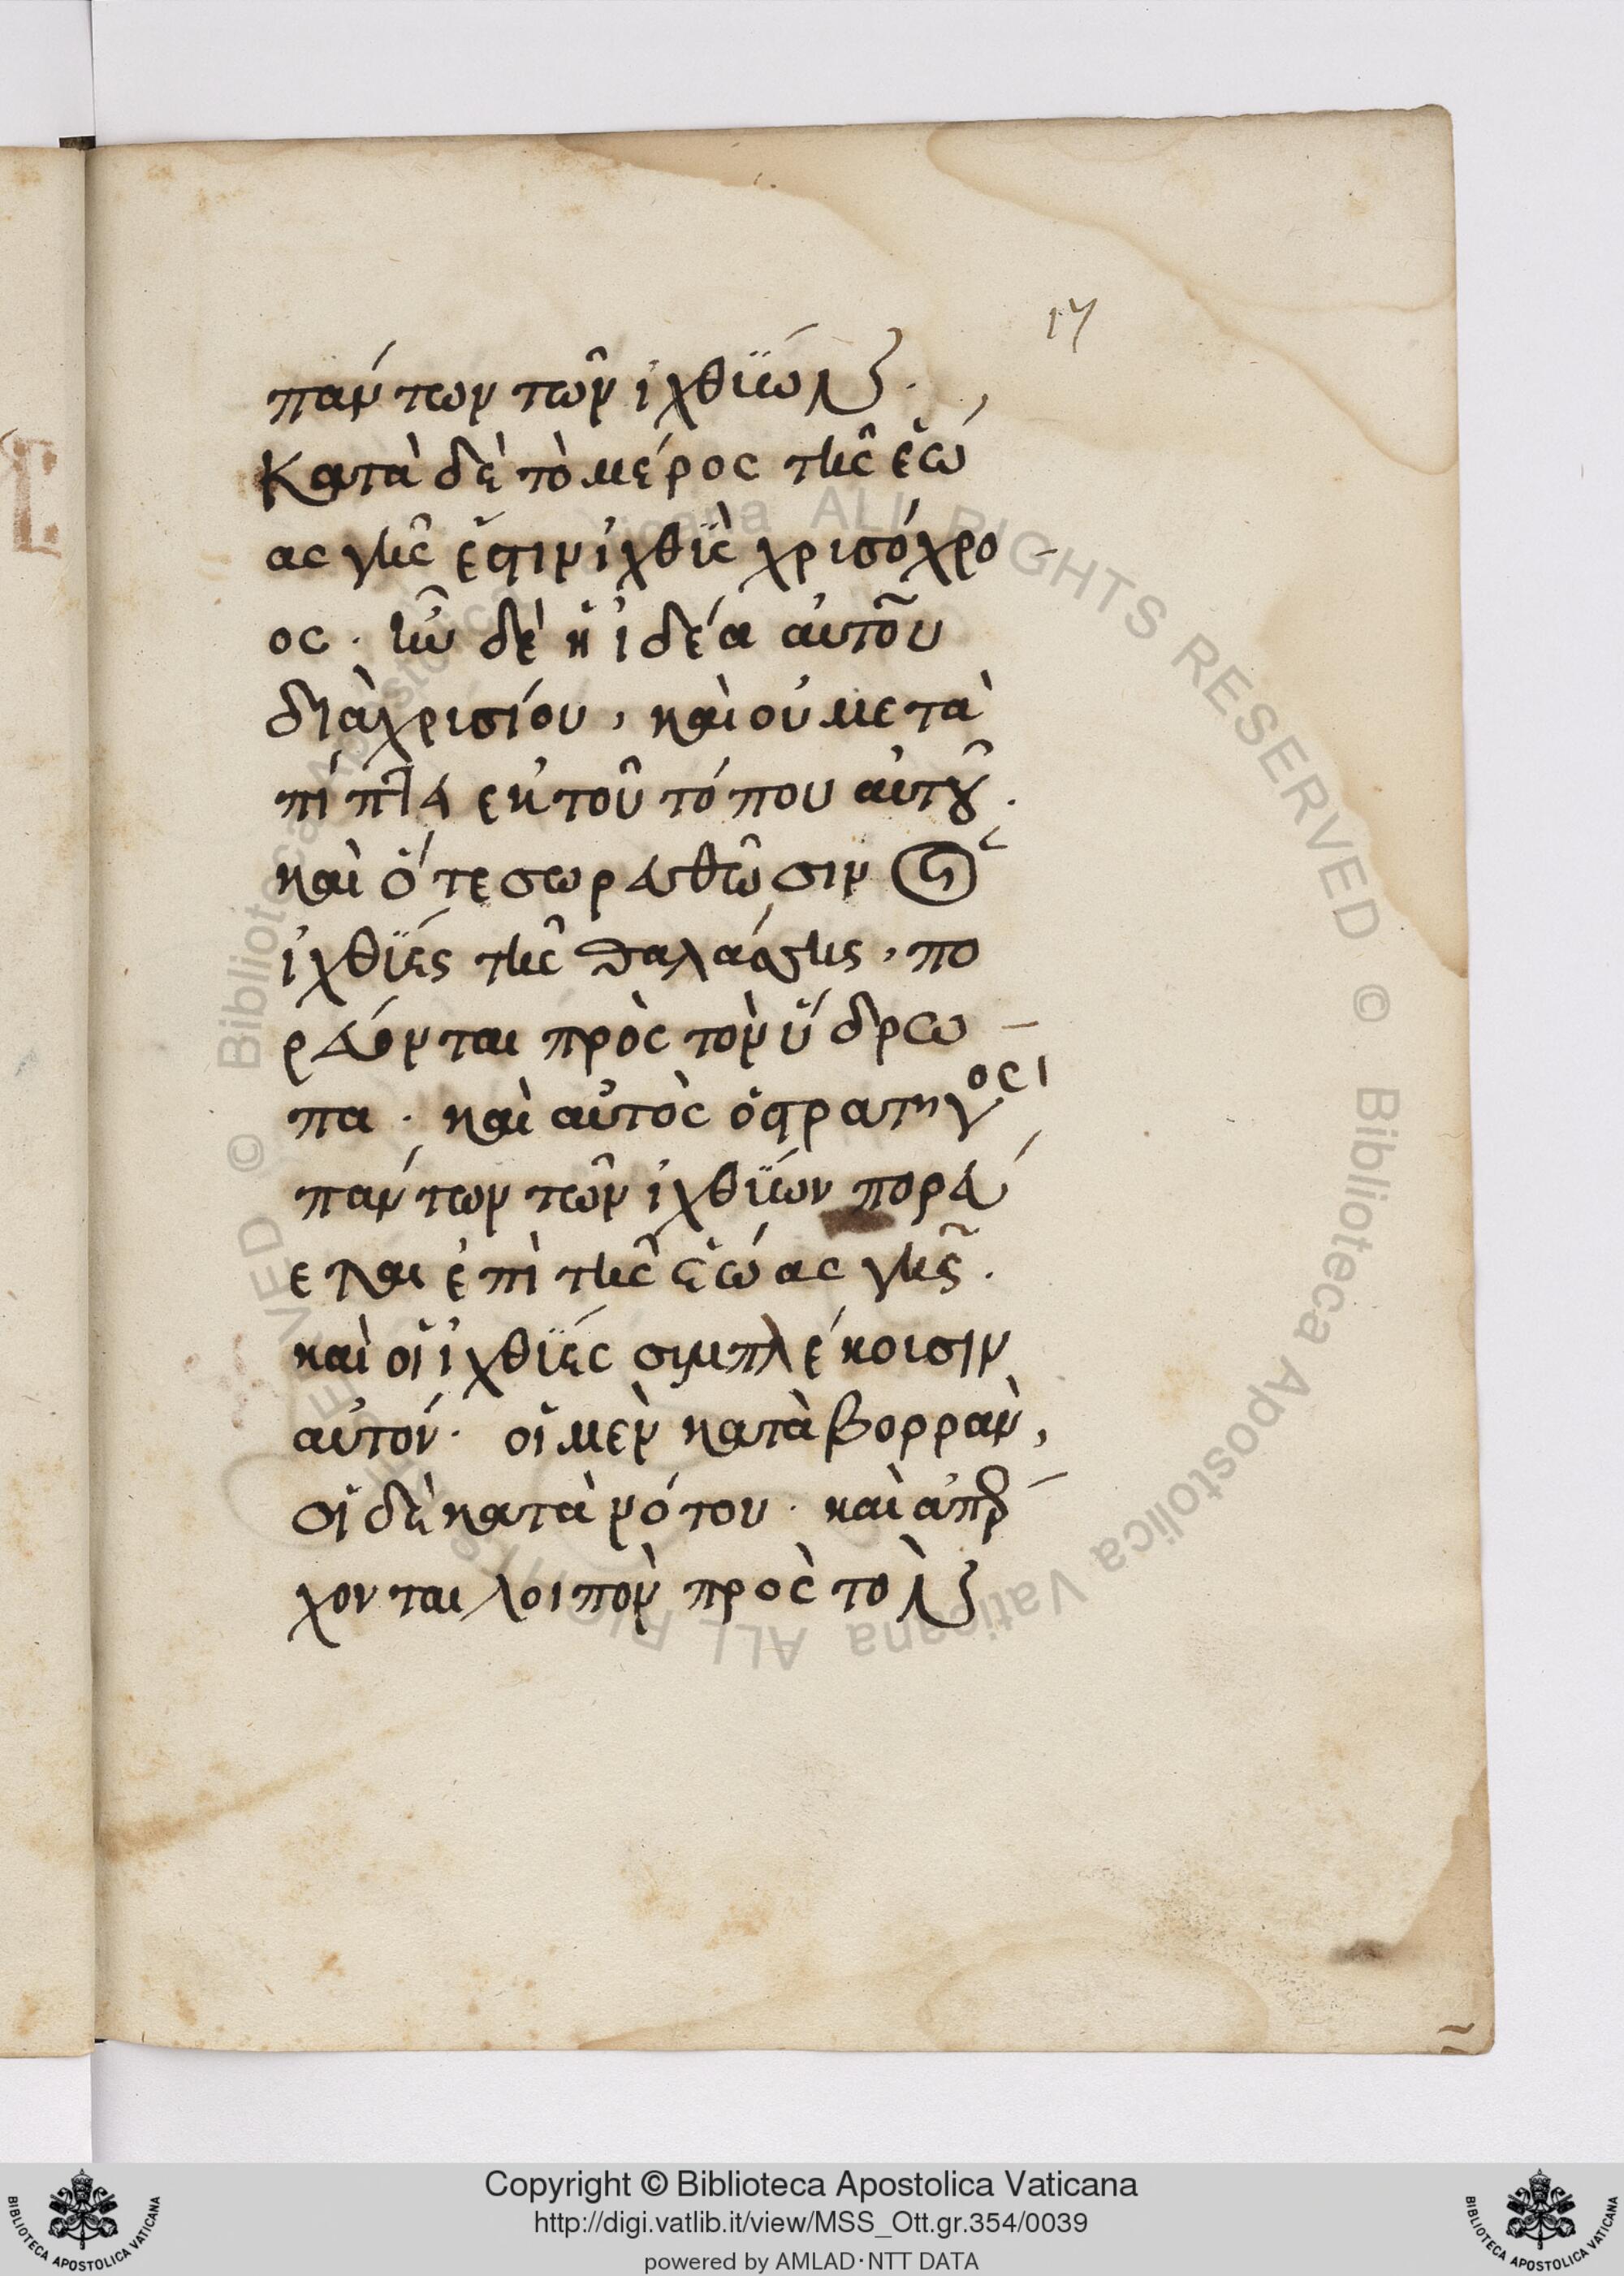 17
πάντων τῶν ἰχθϊών.
Κατὰ δὲ τὸ μέρος τῆς ἑώ
ας γῆς ἔστιν ἰχθῒς χρισόχρο
ος. ἦν δὲ ἡ ἰδέα αὐτοῦ
διὰ χρισίου, καὶ οὐ μετα
πίπτει ἐκ τοῦ τόπου αὐτοῦ.
καὶ ὅτε σωρευθῶσιν οἱ
ἰχθΐες τῆς θαλάσσης, πο
ρεύονται πρὸς τὸν ὕδρω
πα. καὶ αὐτὸς ὁ στρατηγος
πάντων τῶν ἰχθΐων πορεύ
εται ἐπὶ τῆς ἑώας γῆς.
καὶ οἱ ἰχθΐες σιμπλέκοισιν
αὐτόν. οἱ μὲν κατὰ βορρὰν,
οἱ δὲ κατὰ νότου. καὶ ἀπέρ
χονται λοιπὸν πρὸς τὸν
© Biblioteca Apostolica Vaticana ALL RIGHTS RESERVED
Copyright © Biblioteca Apostolica Vaticana
http://digi.vatlib.it/view/MSS_Ott.gr.354/0039
powered by AMLAD·NTT DATA
BIBLIOTECA APOSTOLICA VATICANA
BIBLIOTECA APOSTOLICA VATICANA